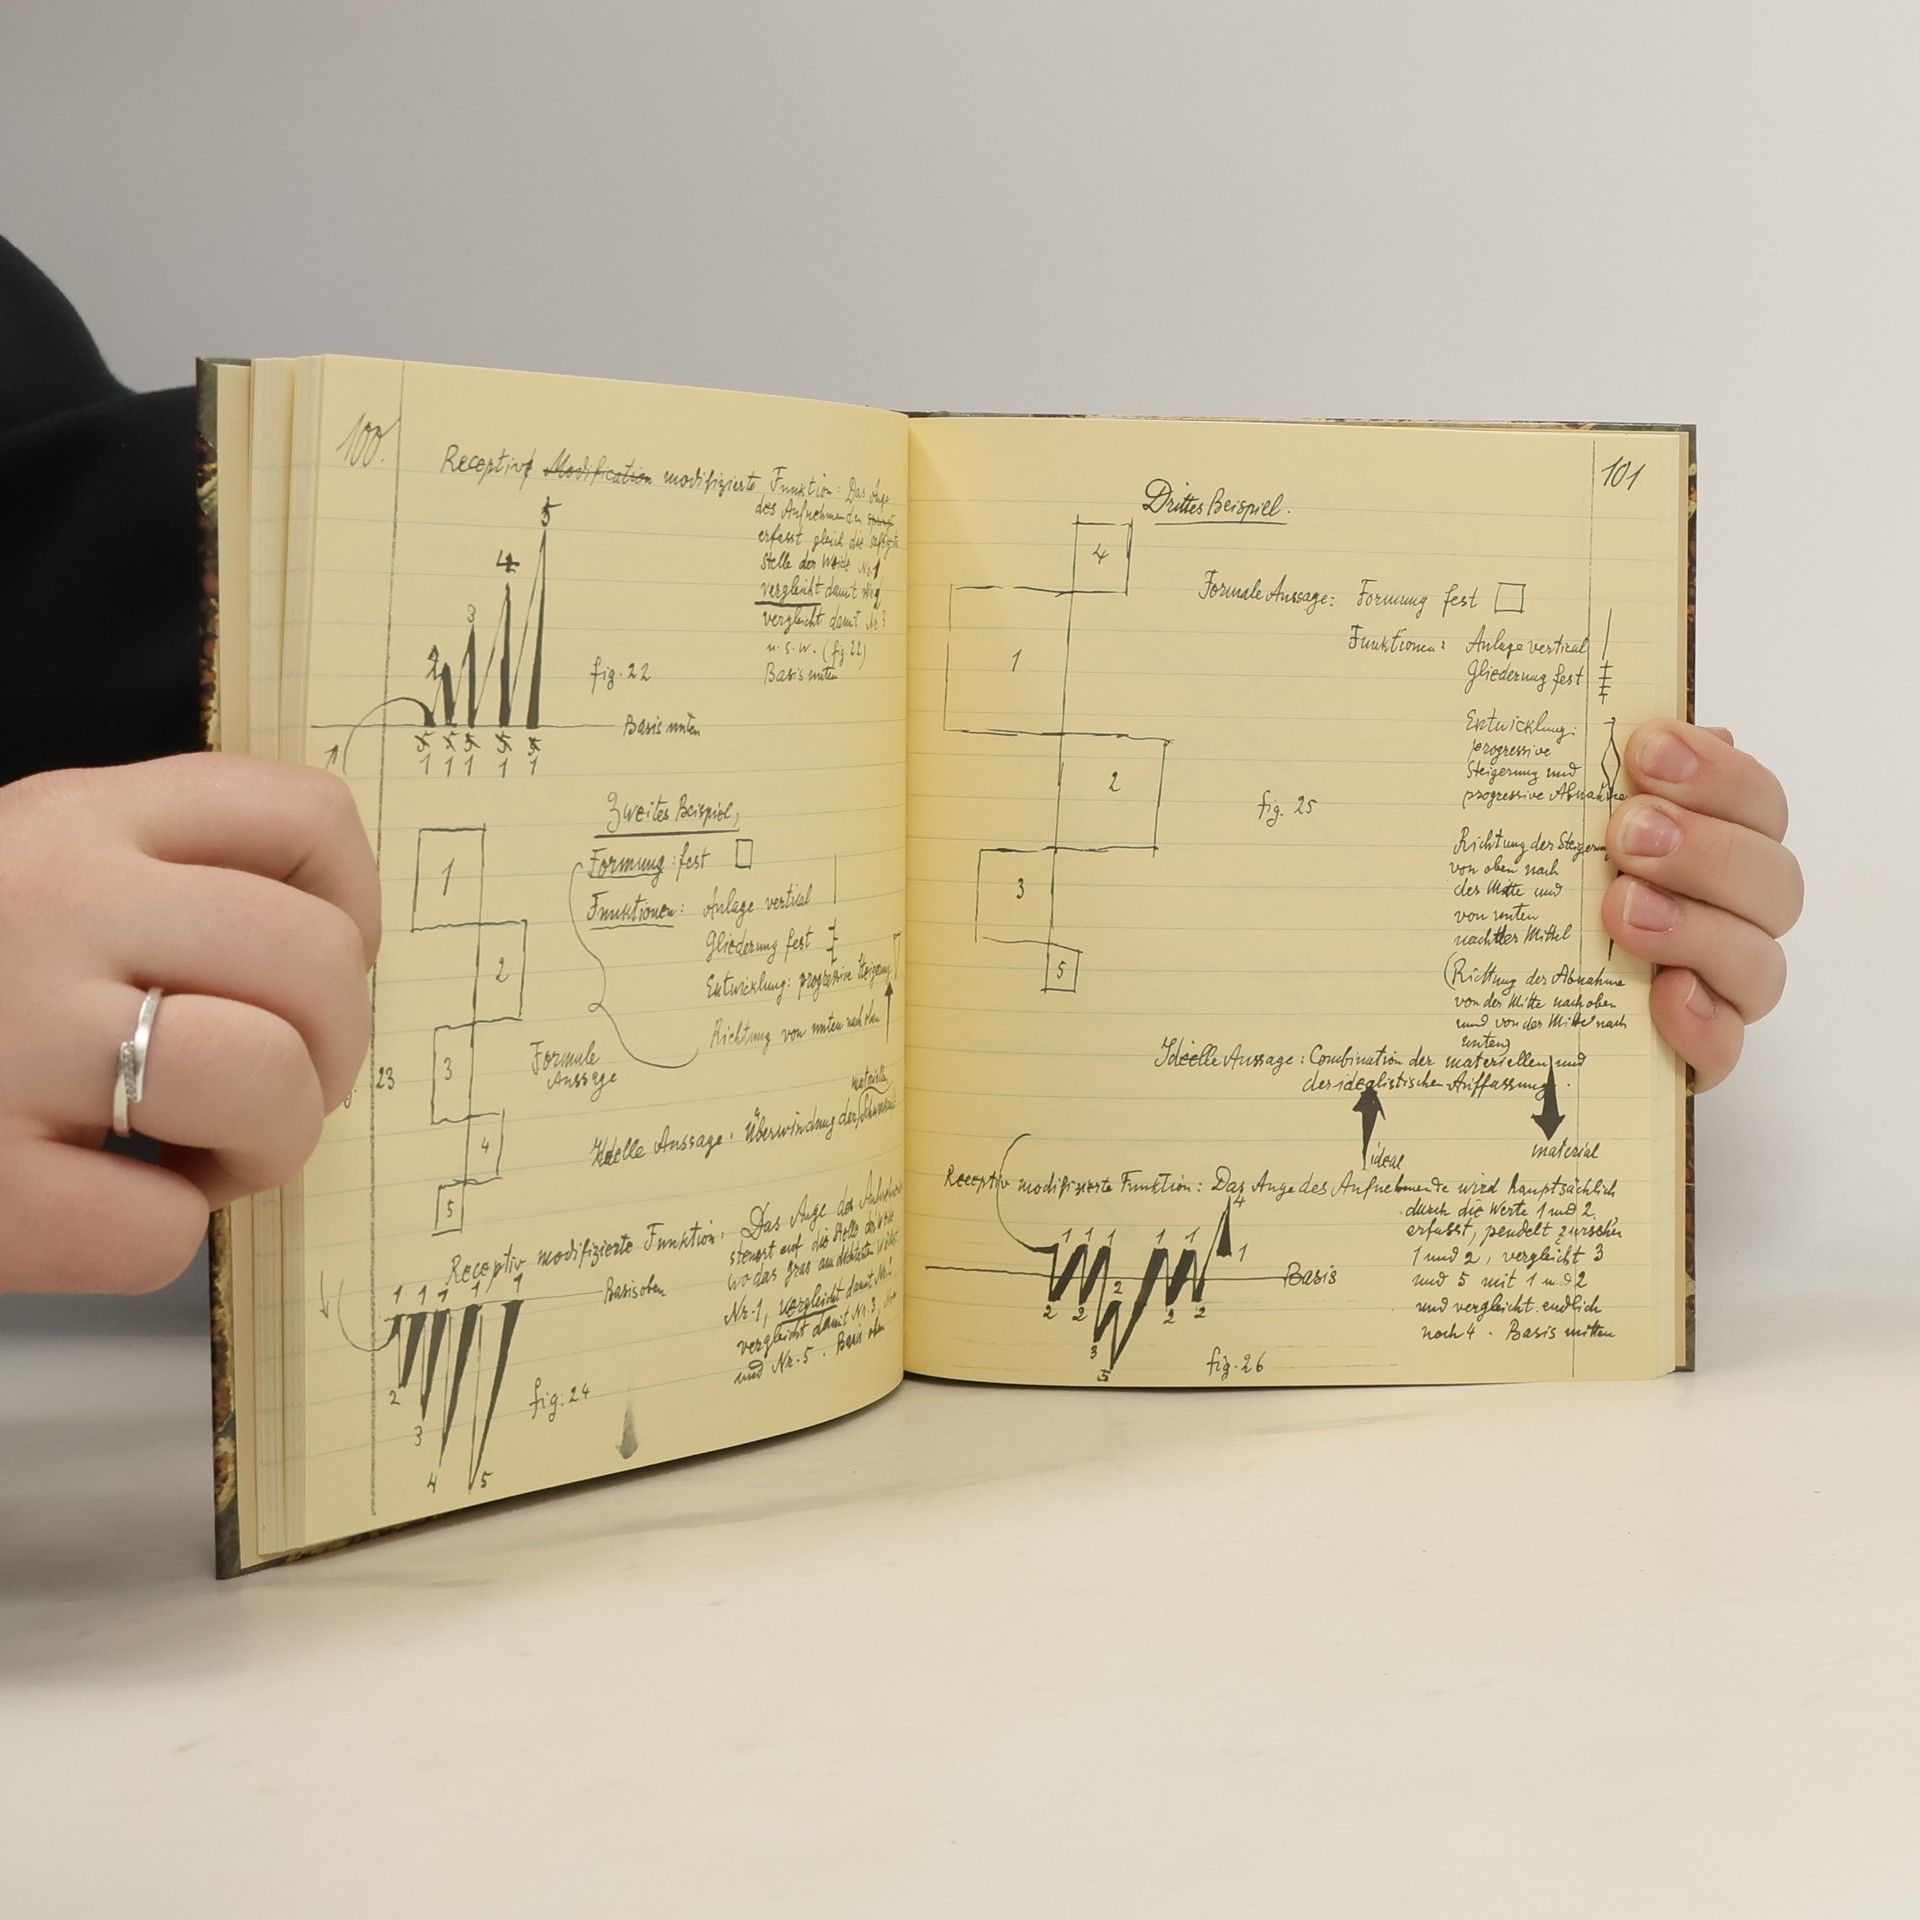 100.
Receptiv Modification modifizierte Funktion: Das Auge
des Aufnehmenden
erfasst gleich die saftigste
Stelle der Weide Nr 1
vergleicht damit
vergleicht damit Nr 3
u. s. w. (fig. 22)
Basis unten
5
4
3
2
fig. 22
Basis unten
5 5 5 5 5
1 1 1 1 1
Zweites Beispiel,
Formung: fest
Funktionen: Anlage vertical
Gliederung fest
Entwicklung: progressive Steigerung
Richtung von unten nach oben
1
2
3
4
5
23
Formale
Aussage
materiellen
Ideelle Aussage. Überwindung der Schwerkraft
Receptiv modifizierte Funktion: Das Auge des Aufnehmenden
steuert auf die Stelle der Weide
wo das Gras am dichtesten wächst
Nr. 1, vergleicht damit Nr. 2,
vergleicht damit Nr. 3,
und Nr. 5. Basis oben
1 1 1 1 1
Basis oben
2
3
4
5
fig. 24
101
Drittes Beispiel.
4
1
2
3
5
Formale Aussage: Formung fest
Funktionen: Anlage vertical
Gliederung fest
Entwicklung:
progressive
Steigerung und
progressive Abnahme
fig. 25
Richtung der Steigerung
von oben nach
der Mitte und
von unten
nach der Mittel
(Richtung der Abnahme
von der Mitte nach oben
und von der Mitte nach
unten)
Ideelle Aussage: Combination der materiellen und
der idealistischen Auffassung.
ideal
material
Receptiv modifizierte Funktion: Das Auge des Aufnehmende wird hauptsächlich
durch die Werte 1 und 2.
erfasst, pendelt zwischen
1 und 2, vergleicht 3
und 5 mit 1 und 2
und vergleicht endlich
noch 4. Basis mitten
4
1 1 1 1 1 1
Basis
2 2 2 2 2
3
5
fig. 26